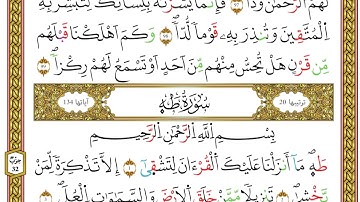 لَهُمُ الرَّحْمَٰنُ وُدًّا فَإِنَّمَا يَسَّرْنَٰهُ بِلِسَانِكَ لِتُبَشِّرَ بِهِ
اِلْمُتَّقِينَ وَتُنذِرَ بِهِۦ قَوْماً لُّدّاً وَكَمَ اَهْلَكْنَا قَبْلَهُم
مِّن قَرْنٍ هَلْ تُحِسُّ مِنْهُم مِّنَ اَحَدٍ اَوْ تَسْمَعُ لَهُمْ رِكْزاً
ترتيبها 20 سُورَةُ طَهَ آياتها 134
بِسْمِ اِللَّهِ اِلرَّحْمَٰنِ اِلرَّحِيمِ
حزب 32
طَهَ مَا أَنزَلْنَا عَلَيْكَ اَلْقُرْءَانَ لِتَشْقَىٰ إِلَّا تَذْكِرَةً لِّمَنْ
يَّخْشَىٰ تَنزِيلاً مِّمَّنْ خَلَقَ اَلَارْضَ وَالسَّمَٰوَٰتِ اِلْعُلَى